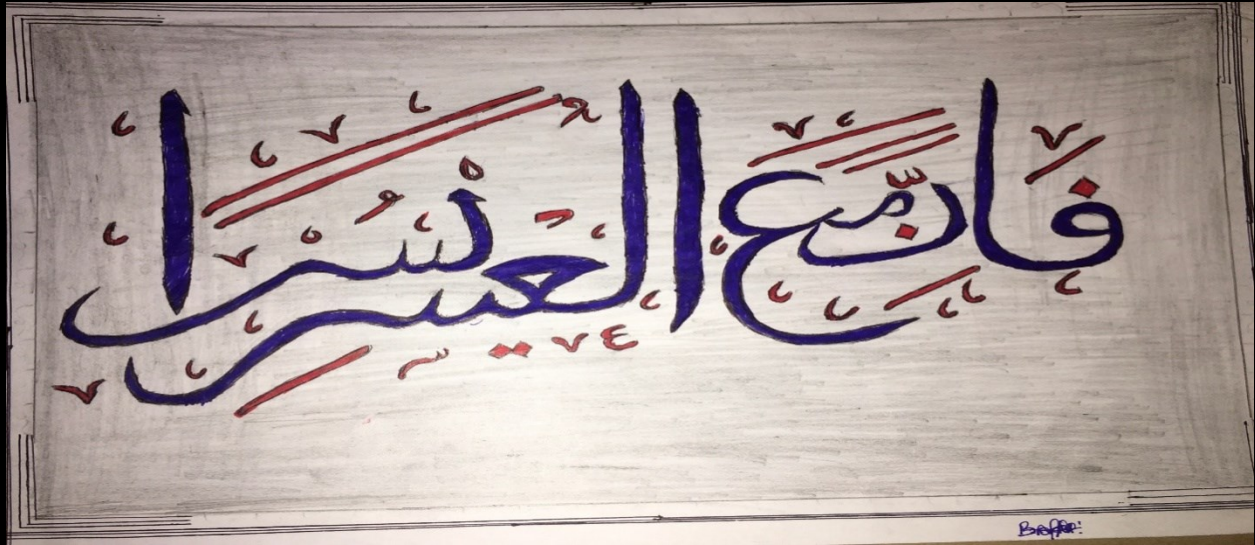 فَاِنَّ مَعَ الْعُسْرِ يُسْرًا